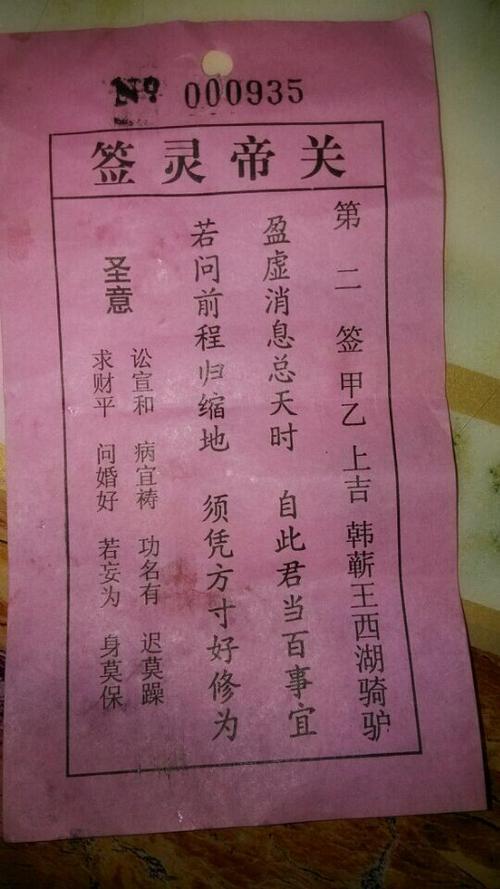 No 000935
关帝灵签
第二签 甲乙 上吉 韩蕲王西湖骑驴
盈虚消息总天时 自此君当百事宜
若问前程归缩地 须凭方寸好修为
圣意
讼宣和 病宜祷 功名有 迟莫躁
求财平 问婚好 若妄为 身莫保